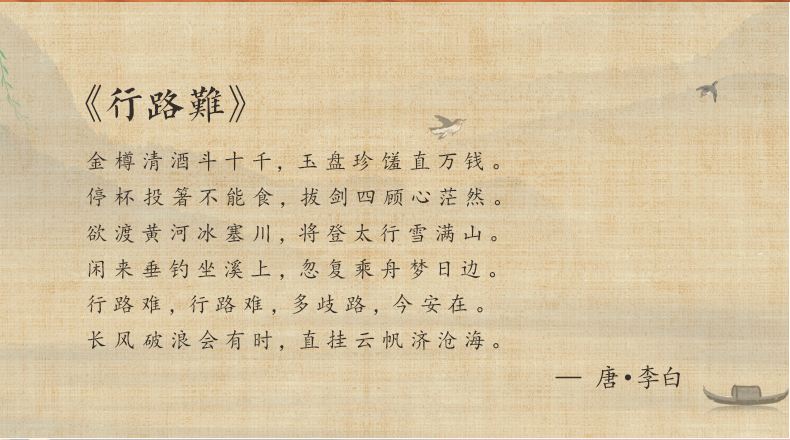 《行路難》
金樽清酒斗十千，玉盘珍馐直万钱。
停杯投箸不能食，拔剑四顾心茫然。
欲渡黄河冰塞川，将登太行雪满山。
闲来垂钓坐溪上，忽复乘舟梦日边。
行路难，行路难，多歧路，今安在。
长风破浪会有时，直挂云帆济沧海。
— 唐•李白